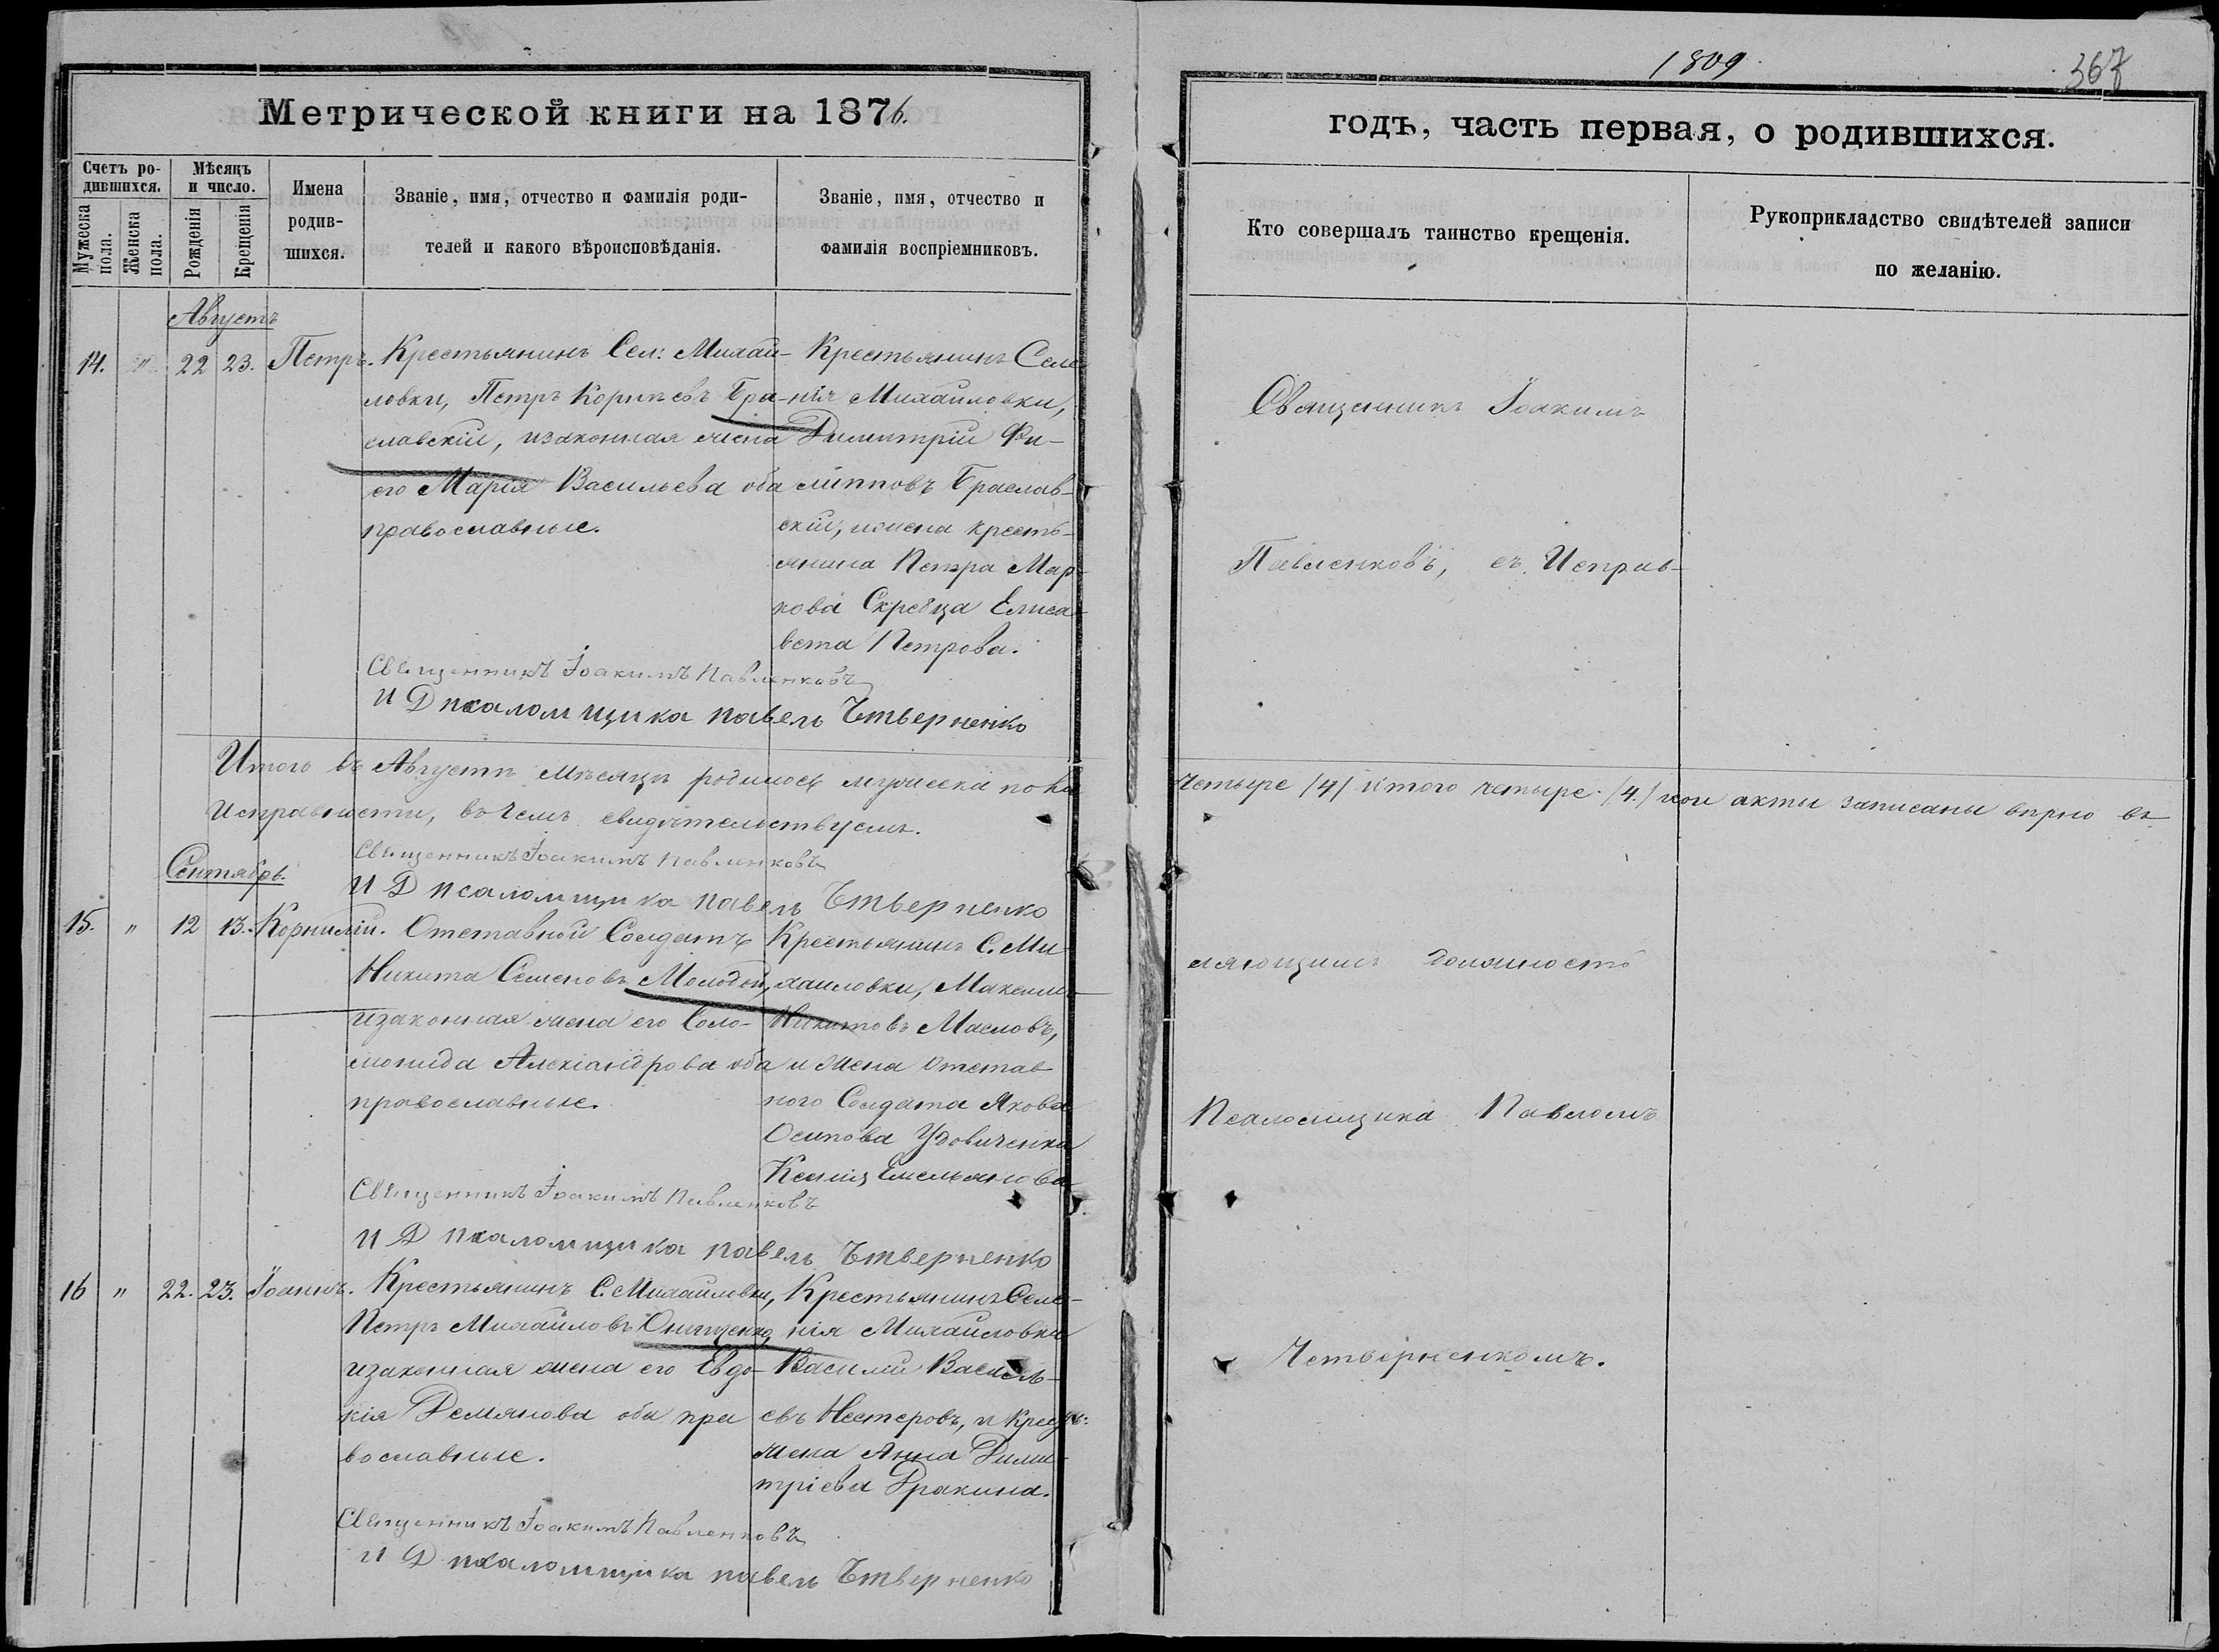 1809
367
Метрической книги на 1876.
годъ, часть первая, о родившихся.
Счетъ ро-
дившихся.
Мужеска
пола.
Женска
пола.
Мѣсяцъ
и число.
Рожденія
Крещенія
Имена
родив-
шихся.
Званіе, имя, отчество и фамилія роди-
телей и какого вѣроисповѣданія.
Званіе, имя, отчество и
фамилія воспріемниковъ.
Кто совершалъ таинство крещенія.
Рукоприкладство свидѣтелей записи
по желанію.
Августъ
14. " 22 23. Петръ.
Крестьянинъ Сел: Михай-
ловки, Петръ Корнѣевъ Бра-
славскій, и законная жена
его Марія Васильева оба
православные.
Крестьянинъ Селе-
нія Михайловки,
Димитрій Фи-
липповъ Браслав-
скій, и жена кресть-
янина Петра Мар-
кова Скребца Елиса-
вета Петрова.
Священникъ Іоакимъ Павленковъ
И Д псаломщика павелъ Чтверненко
Итого въ Августѣ мѣсяцѣ родилось мужеска пола четыре /4/ итого четыре /4./ кои акты записаны вѣрно въ
исправности, въ чемъ свидѣтельствуемъ.
Священникъ Іоакимъ Павленковъ
И Д псаломщика павелъ Чтверненко
Сентябрь.
15. " 12 13. Корнилій.
Отставной Солдатъ
Никита Семеновъ Молодой,
и законная жена его Соло-
монида Алексіандрова оба
православные.
Крестьянинъ С. Ми-
хайловки, Максимъ
Никитовъ Масловъ,
и жена отстав-
ного Солдата Якова
Осипова Удовиченка
Ксенія Емельянова
Священникъ Іоакимъ Павленковъ
И Д псаломщика павелъ Чтверненко
16 " 22. 23. Іоаннъ.
Крестьянинъ С. Михайловки,
Петръ Михайловъ Онищенко,
и законная жена его Евдо-
кія Демянова оба пра
вославные.
Крестьянинъ Селе-
нія Михайловки
Василій Василь-
евъ Нестеровъ, и Крест:
жена Анна Дими-
тріева Дракина.
Священникъ Іоакимъ Павленковъ
И Д псаломщика павелъ Чтверненко
Священникъ Іоакимъ
Павленковъ, съ Исправ-
ляющимъ должность
Псаломщика Павломъ
Четверненкомъ.